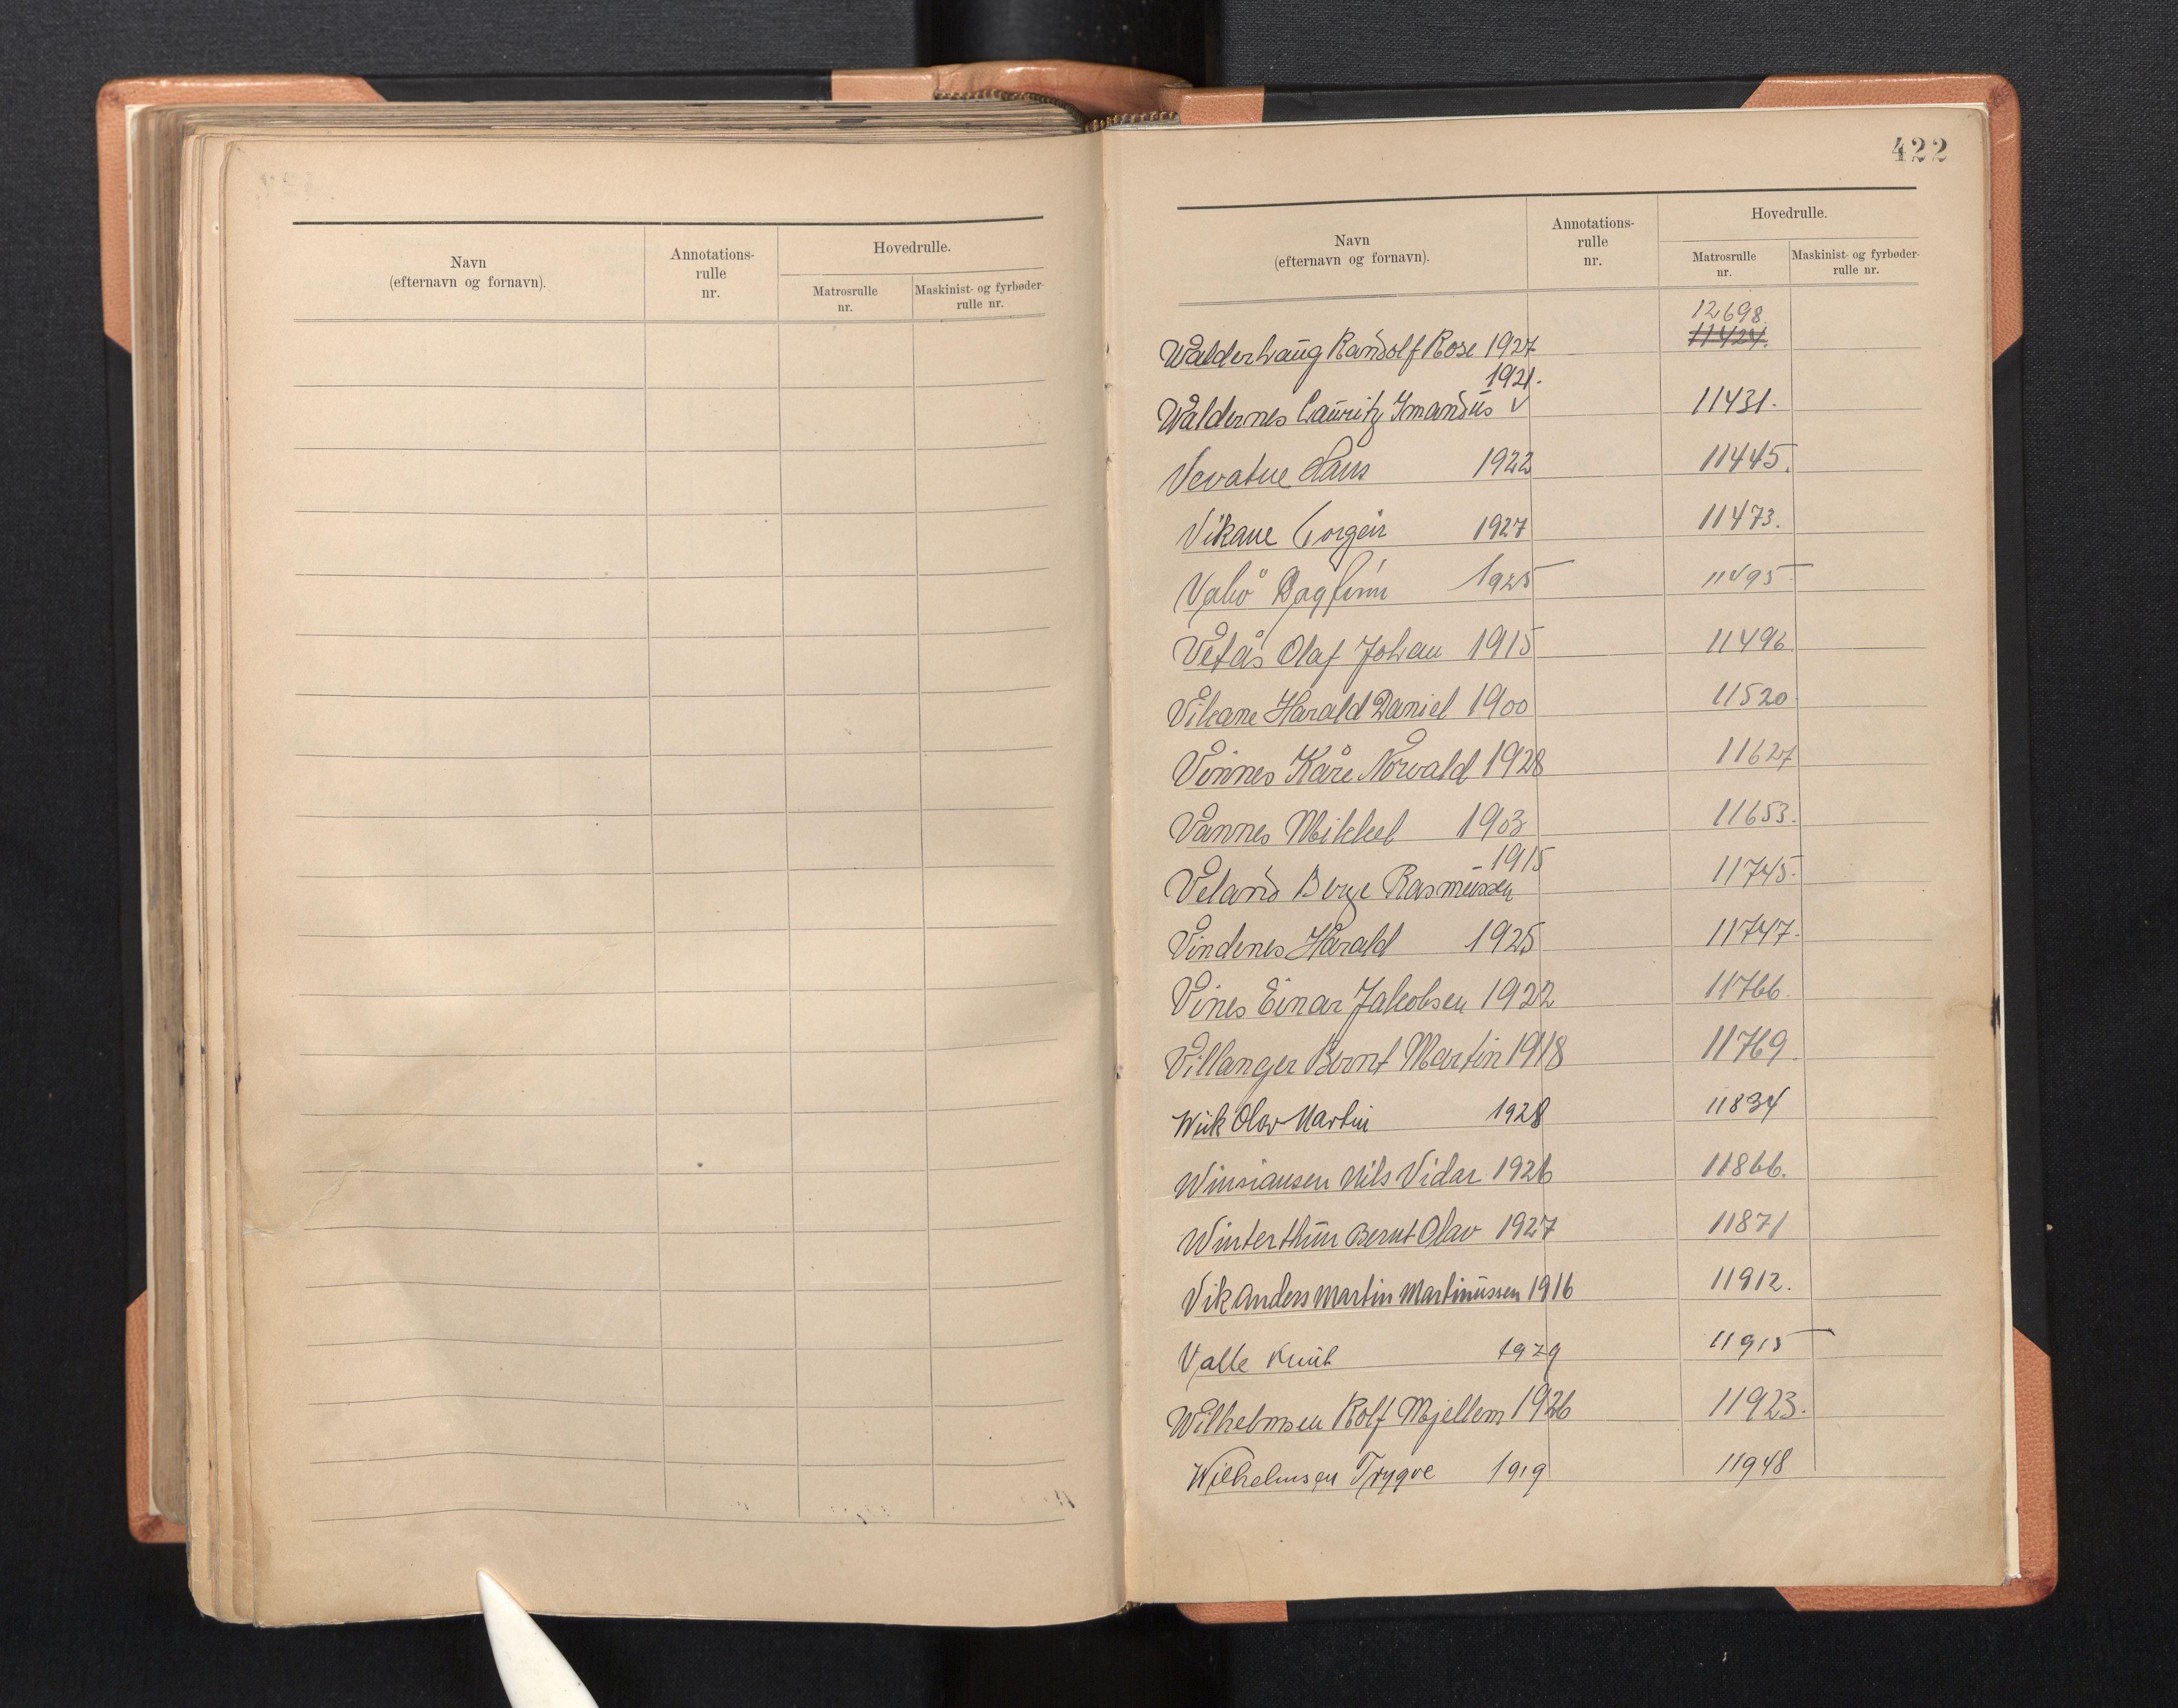 Navn
(efternavn og fornavn).
Annotations-
rulle
nr.
Hovedrulle.
Matrosrulle
nr.
Maskinist- og fyrbøder-
rulle nr.
422
Navn
(efternavn og fornavn).
Annotations-
rulle
nr.
Hovedrulle.
Matrosrulle
nr.
Maskinist- og fyrbøder-
rulle nr.
12698.
Walderhaug Randolf Rose 1927 11424.
1921.
Waldernes Lauritz Imandus V 11431.
Vevatne Hans 1922 11445.
Vikane Torgeir 1927 11473.
Valø Dagfinn 1925 11495
Vetås Olaf Johan 1915 11496
Vikane Harald Daniel 1900 11520
Vinnes Kåre Norvald 1928 11627
Vannes Mikkel 1903 11653.
1915
Veland Berge Rasmussen 11745.
Vindenes Harald 1925 11747.
Vines Einar Jakobsen 1922 11766.
Villanger Bernt Martin 1918 11769.
Wiik Olav Martin 1928 11834
Nils Vidar 1926 11866.
Winterthun Bernt Olav 1927 11871
Vik Anders Martin Martinussen 1916 11912.
Valle Knut 1929 11915
Wilhelmsen Rolf Mjellem 1926 11923.
Wilhelmsen Trygve 1919 11948